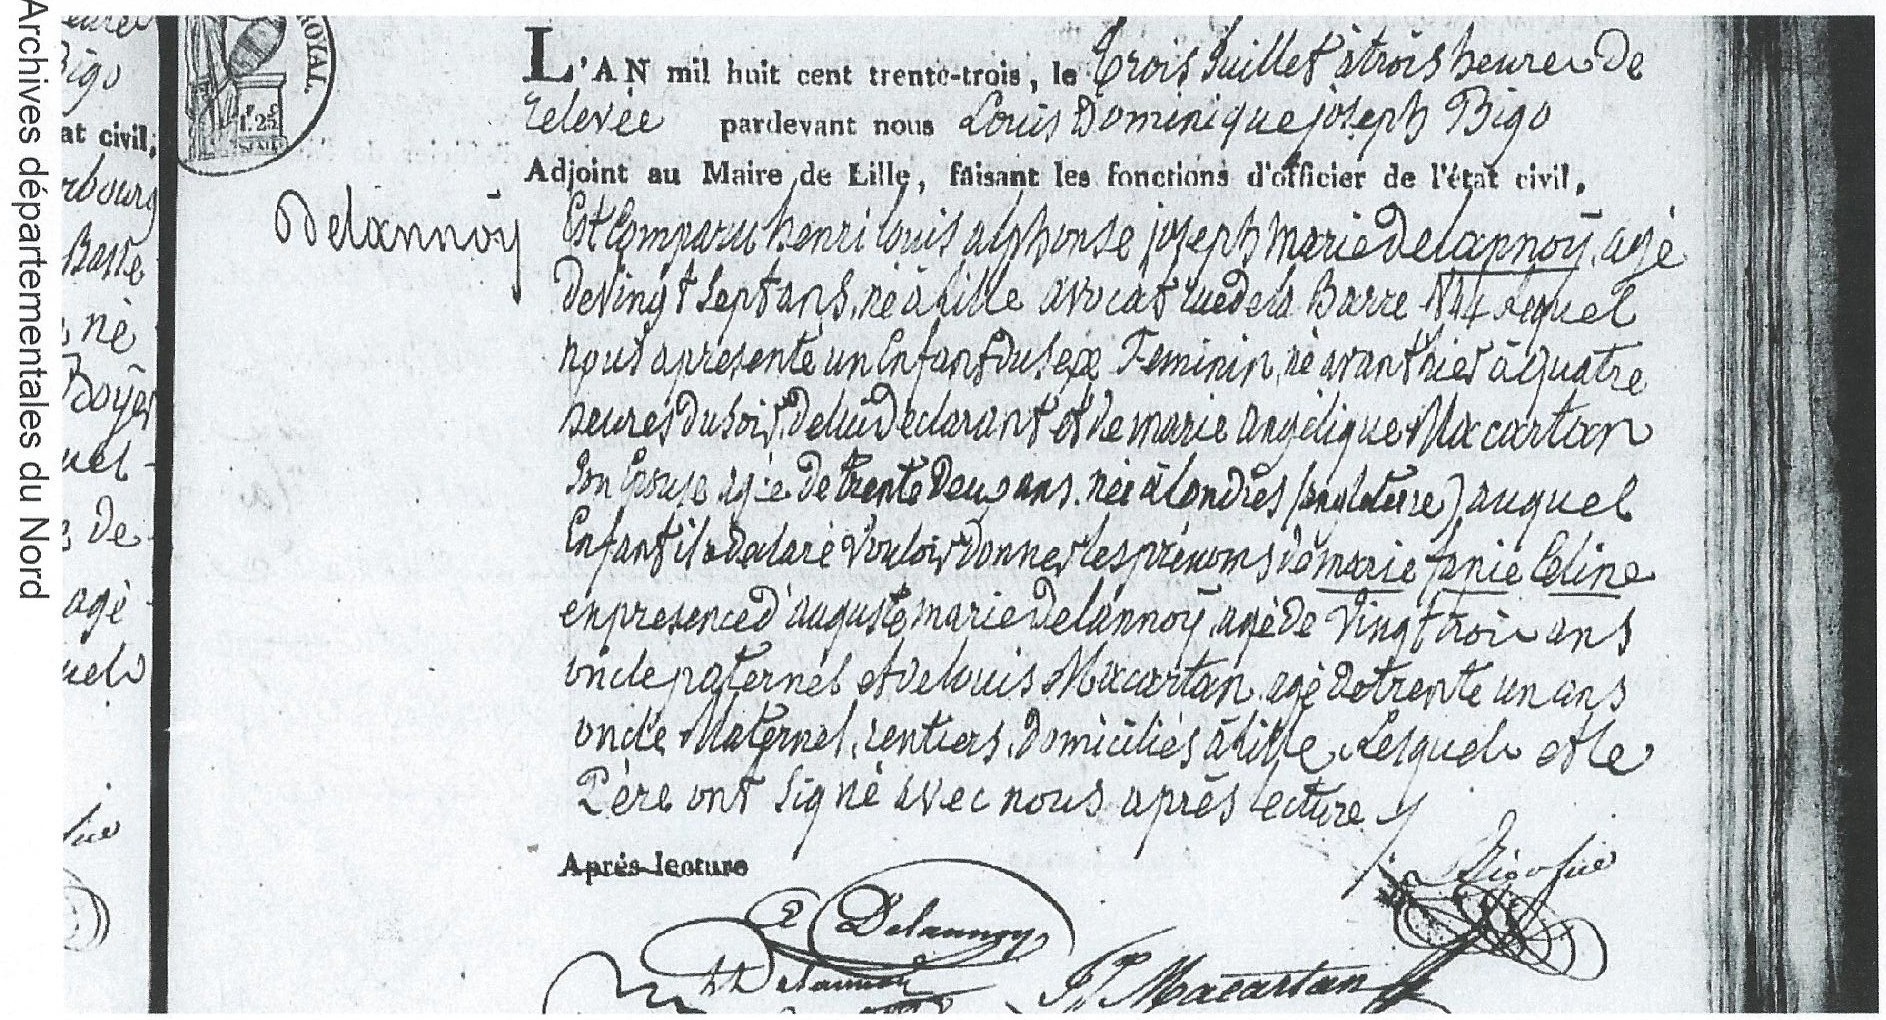 Archives départementales du Nord
Bigo
at civil,
rbourg
Basse
né
Boyer
uel
de
agé
uels
OYAL.
1f.25
L'AN mil huit cent trente-trois, le trois Juillet à trois heures De
relevée pardevant nous Louis Dominique joseph Bigo
Adjoint au Maire de Lille, faisant les fonctions d'officier de l'état civil,
Delannoÿ
Est Comparu henri louis alphonse joseph marie Delannoÿ, agé
De vingt Sept ans, né à Lille avocat rue de la Barre N°44 Lequel
nous a présenté un Enfant du sexe Feminin, né avant hier à quatre
heures Du soir, De lui Declarant et De marie angélique Macartan
Son Epouse agée De trente Deux ans. née à Londres (angleterre) auquel
Enfant il a Declaré Vouloir Donner les prénoms De marie fanie Céline
en presence D'auguste marie Delannoÿ, agé De Vingt trois ans
oncle paternel et De louis Macartan, agé De trente un ans
oncle Maternel, rentiers, Domiciliés à Lille, Lesquels et le
Père ont Signé avec nous après lecture
Après lecture
Bigo
Delannoy
Delannoy
Macartan